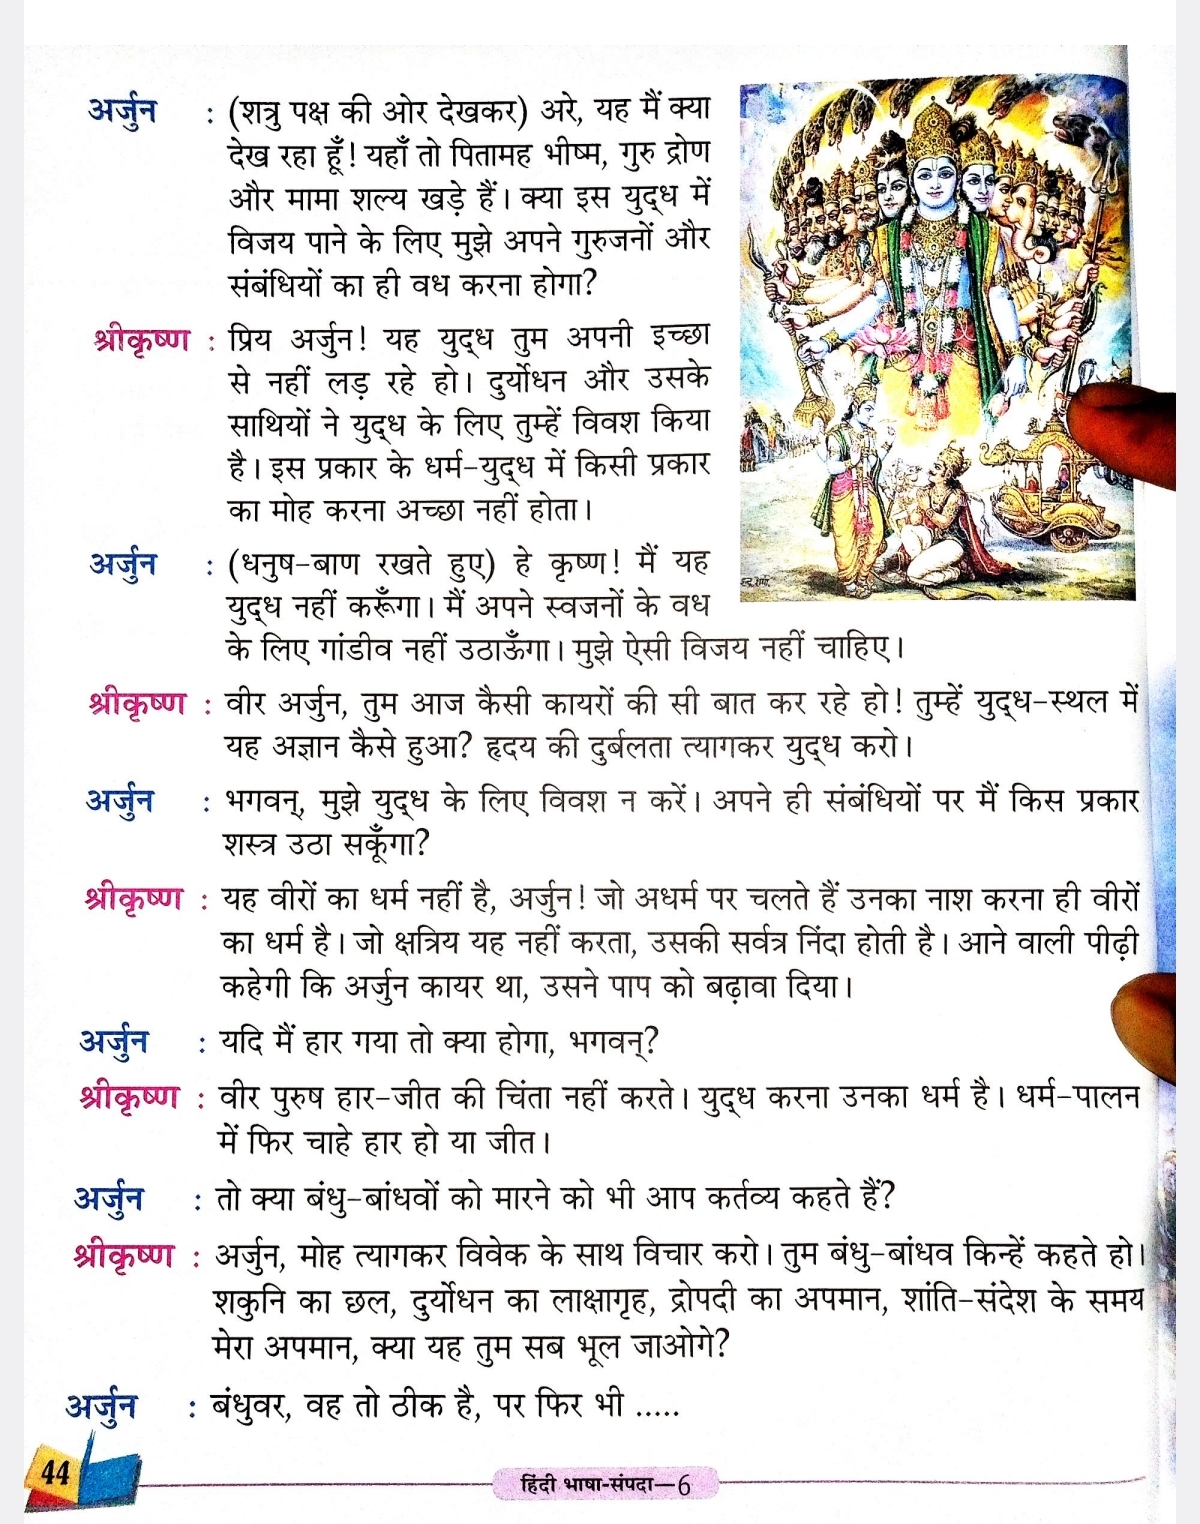 अर्जुन : (शत्रु पक्ष की ओर देखकर) अरे, यह मैं क्या
देख रहा हूँ! यहाँ तो पितामह भीष्म, गुरु द्रोण
और मामा शल्य खड़े हैं। क्या इस युद्ध में
विजय पाने के लिए मुझे अपने गुरुजनों और
संबंधियों का ही वध करना होगा?
श्रीकृष्ण : प्रिय अर्जुन! यह युद्ध तुम अपनी इच्छा
से नहीं लड़ रहे हो। दुर्योधन और उसके
साथियों ने युद्ध के लिए तुम्हें विवश किया
है। इस प्रकार के धर्म-युद्ध में किसी प्रकार
का मोह करना अच्छा नहीं होता।
अर्जुन : (धनुष-बाण रखते हुए) हे कृष्ण! मैं यह
युद्ध नहीं करूँगा। मैं अपने स्वजनों के वध
के लिए गांडीव नहीं उठाऊँगा। मुझे ऐसी विजय नहीं चाहिए।
श्रीकृष्ण : वीर अर्जुन, तुम आज कैसी कायरों की सी बात कर रहे हो! तुम्हें युद्ध-स्थल में
यह अज्ञान कैसे हुआ? हृदय की दुर्बलता त्यागकर युद्ध करो।
अर्जुन : भगवन्, मुझे युद्ध के लिए विवश न करें। अपने ही संबंधियों पर मैं किस प्रकार
शस्त्र उठा सकूँगा?
श्रीकृष्ण : यह वीरों का धर्म नहीं है, अर्जुन! जो अधर्म पर चलते हैं उनका नाश करना ही वीरों
का धर्म है। जो क्षत्रिय यह नहीं करता, उसकी सर्वत्र निंदा होती है। आने वाली पीढ़ी
कहेगी कि अर्जुन कायर था, उसने पाप को बढ़ावा दिया।
अर्जुन : यदि मैं हार गया तो क्या होगा, भगवन्?
श्रीकृष्ण : वीर पुरुष हार-जीत की चिंता नहीं करते। युद्ध करना उनका धर्म है। धर्म-पालन
में फिर चाहे हार हो या जीत।
अर्जुन : तो क्या बंधु-बांधवों को मारने को भी आप कर्तव्य कहते हैं?
श्रीकृष्ण : अर्जुन, मोह त्यागकर विवेक के साथ विचार करो। तुम बंधु-बांधव किन्हें कहते हो।
शकुनि का छल, दुर्योधन का लाक्षागृह, द्रोपदी का अपमान, शांति-संदेश के समय
मेरा अपमान, क्या यह तुम सब भूल जाओगे?
अर्जुन : बंधुवर, वह तो ठीक है, पर फिर भी .....
44
हिंदी भाषा-संपदा—6